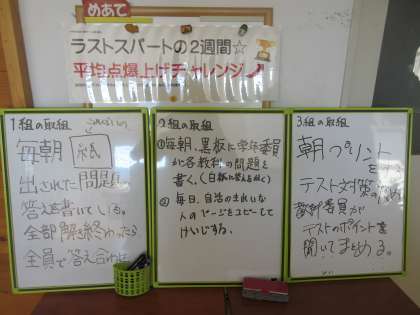 めあて
ラストスパートの2週間☆
平均点爆上げチャレンジ
1組の取組
毎朝 紙
出された問題
答えを書いていく。
全部解き終わったら
全員で答え合わせ
2組の取組
①毎朝、黒板に学年委員
が各教科の問題を
書く。(白板に答えを書く)
② 毎日、自治のきれいな
人のページをコピーして
けいじする。
3組の取組
朝プリントを
テスト対策のため
教科委員が
テストのポイントを
聞いてまとめる。